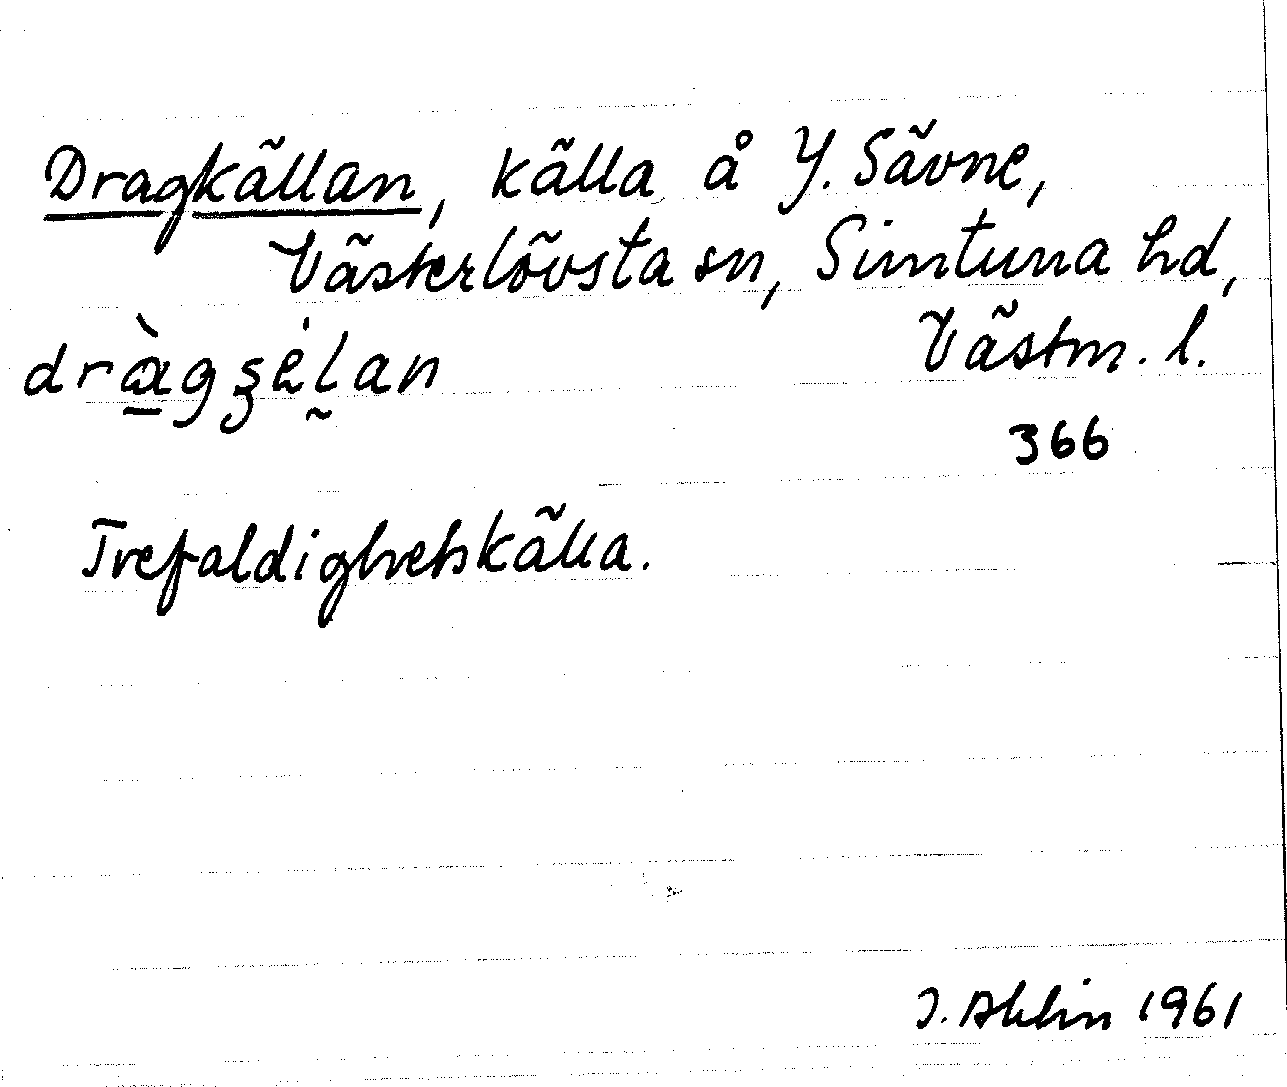 Dragkällan, källa å Y. Sävne,
Västerlövsta sn, Simtuna hd,
Västm. l.
drà̲gʂe̍l̰an
366
Trefaldighetskälla.
J. Ahlin 1961